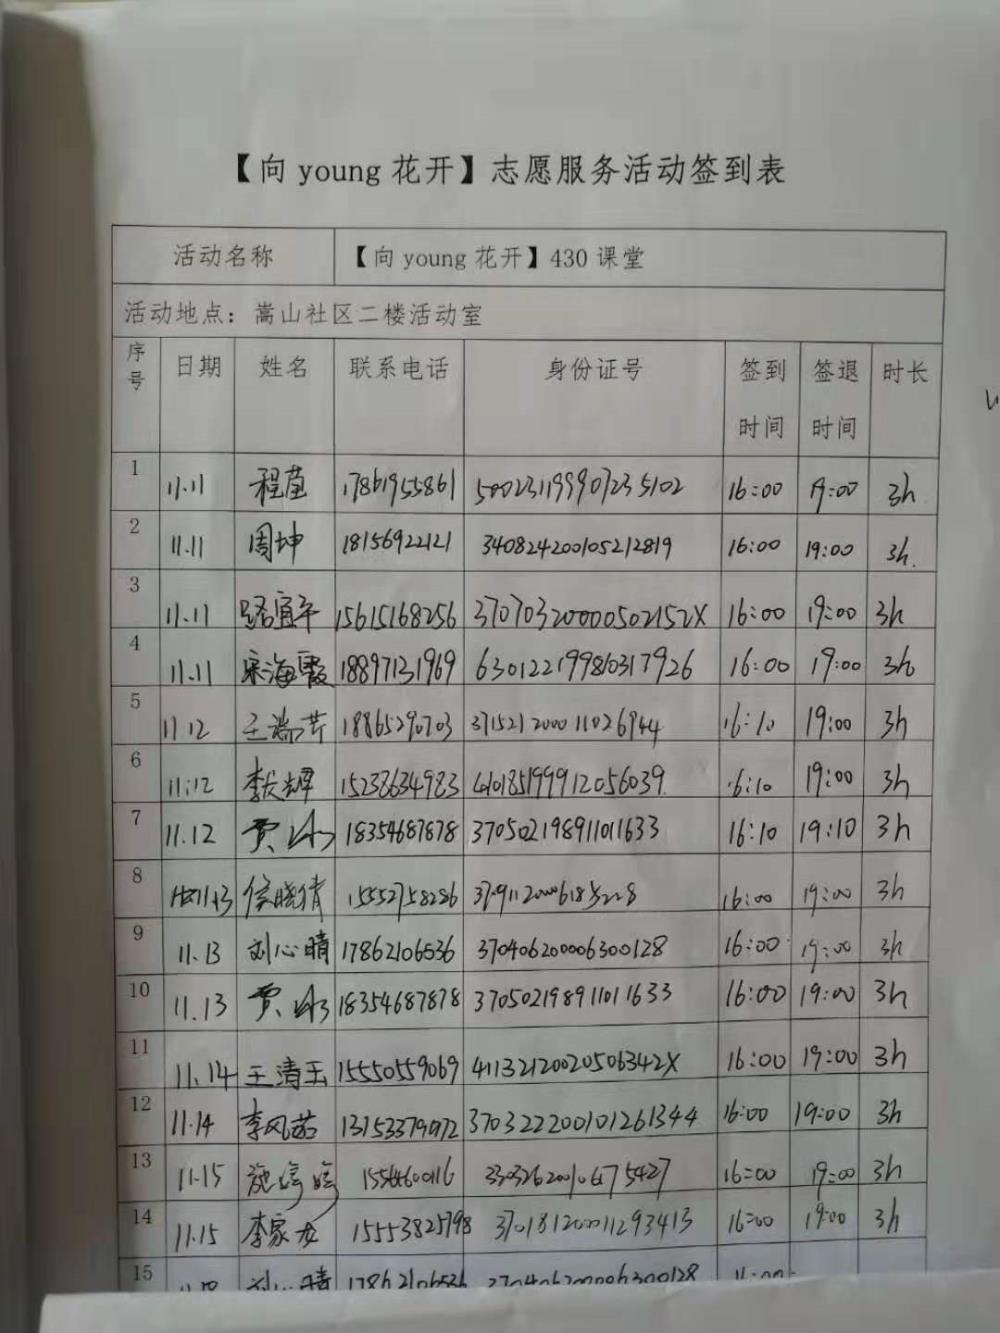 【向 young 花开】志愿服务活动签到表
活动名称 【向 young 花开】430 课堂
活动地点：嵩山社区二楼活动室
序号 日期 姓名 联系电话 身份证号 签到时间 签退时间 时长
1 11.11 程莹 17861955861 500231199907235102 16:00 19:00 3h
2 11.11 周坤 18156922121 340824200105212819 16:00 19:00 3h.
3 11.11 路宜平 15615168256 37070320000502152X 16:00 19:00 3h
4 11.11 宋海霞 18897131969 630122199860317926 16:00 19:00 3h
5 11.12 王瑞芹 18865290703 371521200011026944 16:10 19:00 3h
6 11:12 15238634983 410185199912056039 16:10 19:00 3h
7 11.12 贾 18354687878 370502198911011633 16:10 19:10 3h
8 11.13 侯晓倩 15552758286 16:00 19:00 3h
9 11.13 刘心晴 17862106536 370406200006300128 16:00 19:00 3h
10 11.13 贾 18354687878 370502198911011633 16:00 19:00 3h
11 11.14 王清玉 15550559069 41132120020506342X 16:00 19:00 3h
12 11.14 李风茹 370322200101261344 16:00 19:00 3h
13 11.15 施婷婷 16:00 19:00 3h
14 11.15 李家女 15553825798 370181200011293413 16:00 19:00 3h
15 刘心晴 17862106536 370406200006300128